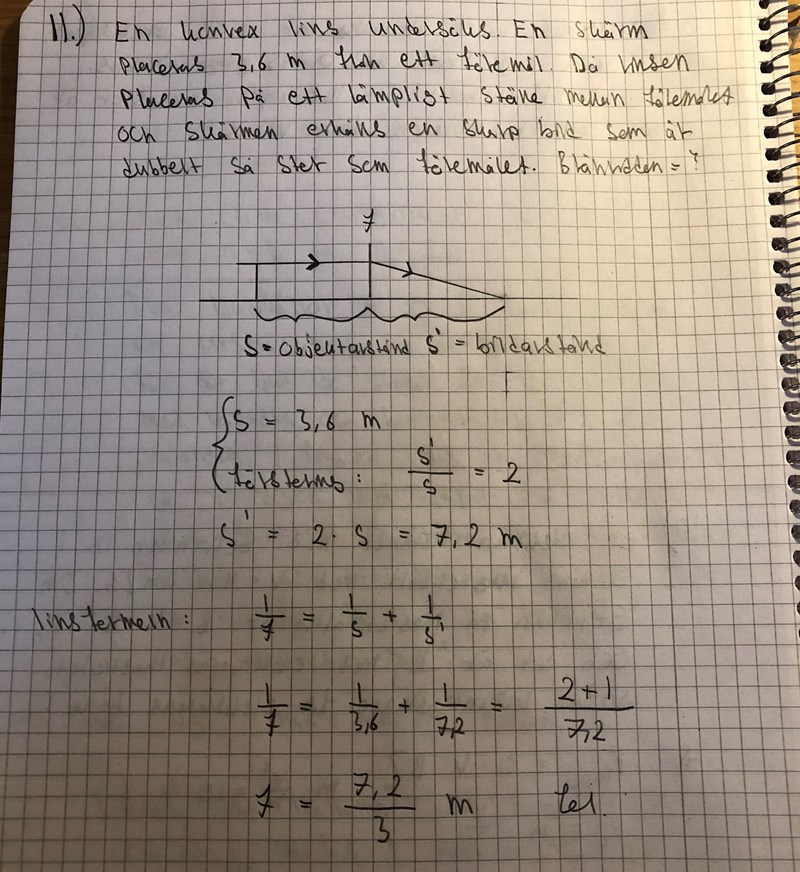 11.) En konvex lins undersöks. En skärm
placeras 3,6 m från ett föremål. Då linsen
placeras på ett lämpligt ställe mellan föremålet
och skärmen erhålls en skarp bild som är
dubbelt så stor som föremålet. Brännvidden = ?
f
s = objektavstånd s' = bildavstånd
s = 3,6 m
förstorns : s'/s = 2
s' = 2 · s = 7,2 m
linsformeln : 1/f = 1/s + 1/s'
1/f = 1/3,6 + 1/7,2 = 2+1/7,2
f = 7,2/3 m fel.